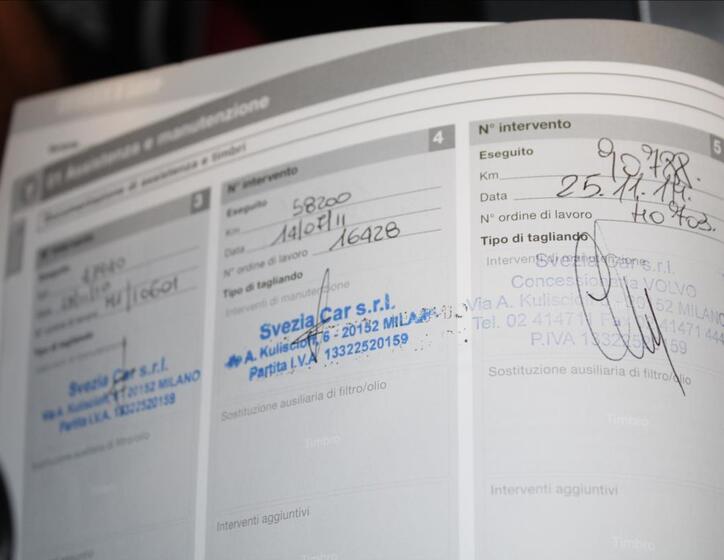 01 Assistenza e manutenzione
Documentazione di assistenza e timbri
3
N° intervento
Eseguito
Km
Data
N° ordine di lavoro
Tipo di tagliando
Svezia Car s.r.l.
Via A. Kuliscioff, 6 - 20152 MILANO
Partita I.V.A. 13322520159
Sostituzione ausiliaria di filtro/olio
4
N° intervento
Eseguito
Km 58200
Data 14/07/11
N° ordine di lavoro 16428
Tipo di tagliando
Interventi di manutenzione
Svezia Car s.r.l.
A. Kuliscioff, 6 - 20152 MILANO
Partita I.V.A. 13322520159
Sostituzione ausiliaria di filtro/olio
Timbro
Interventi aggiuntivi
5
N° intervento
Eseguito
Km 90788.
Data 25.11.14.
N° ordine di lavoro
Tipo di tagliando
Interventi di manutenzione
Svezia Car s.r.l.
Concessionaria VOLVO
Via A. Kuliscioff, - 20152 MILANO
Tel. 02
P.IVA
Sostituzione ausiliaria di filtro/olio
Timbro
Interventi aggiuntivi
Timbro